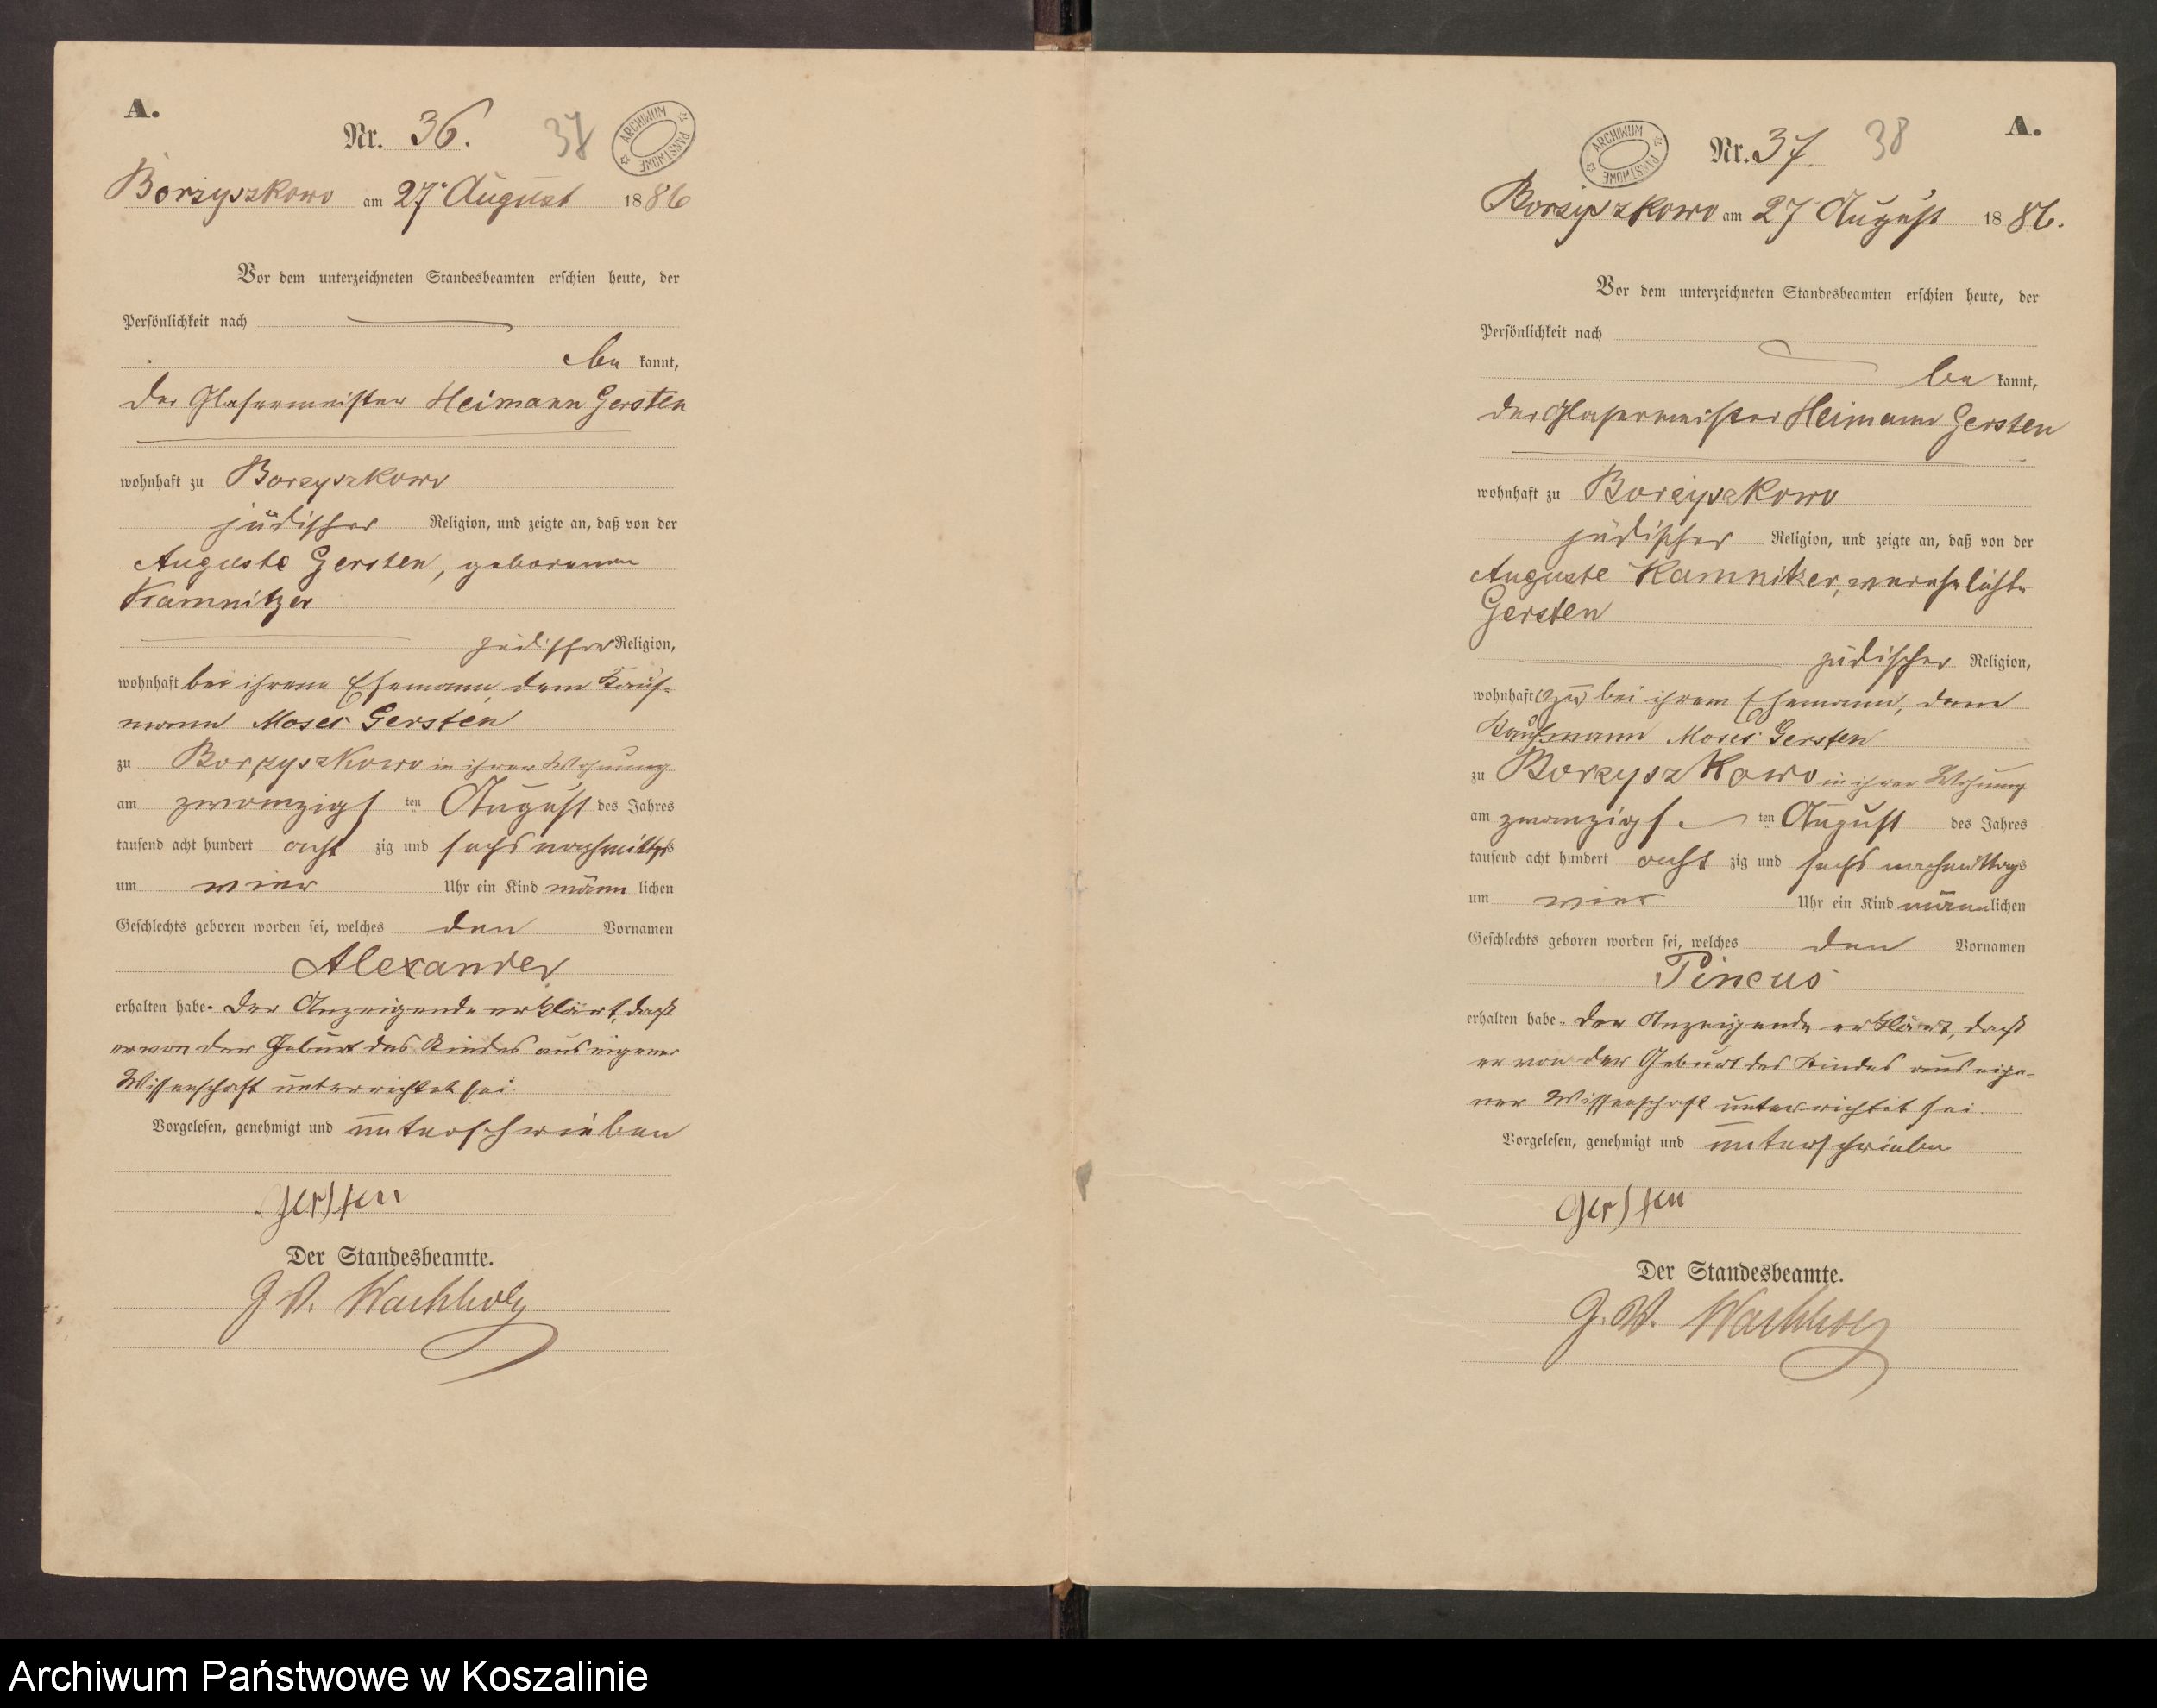 A.
Nr. 36.
37
ARCHIWUM PAŃSTWOWE
Borzyszkowo am 27. August 1886
Vor dem unterzeichneten Standesbeamten erschien heute, der
Persönlichkeit nach
be kannt,
der Glasermeister Heimann Gersten
wohnhaft zu Borzyszkowo
jüdischer Religion, und zeigte an, daß von der
Auguste Gersten, geborenen
Kamnitzer
jüdischer Religion,
wohnhaft bei ihrem Ehemann, dem Kauf-
mann Moses Gersten
zu Borzyszkowo in ihrer Wohnung
am zwanzigs ten August des Jahres
tausend acht hundert acht zig und sechs nachmittags
um vier Uhr ein Kind männ lichen
Geschlechts geboren worden sei, welches den Vornamen
Alexander
erhalten habe. Der Anzeigende erklärt, daß
er von der Geburt des Kindes aus eigener
Wissenschaft unterrichtet sei.
Vorgelesen, genehmigt und unterschrieben
Gersten
Der Standesbeamte.
Wachholz
A.
Nr. 37.
38
ARCHIWUM PAŃSTWOWE
Borzyszkowo am 27 August 1886.
Vor dem unterzeichneten Standesbeamten erschien heute, der
Persönlichkeit nach
be kannt,
der Glasermeister Heimann Gersten
wohnhaft zu Borzyszkowo
jüdischer Religion, und zeigte an, daß von der
Auguste Kamnitzer, verehelichte
Gersten
jüdischer Religion,
wohnhaft (zu) bei ihrem Ehemann, dem
Kaufmann Moses Gersten
zu Borzyszkowo in ihrer Wohnung
am zwanzigs ten August des Jahres
tausend acht hundert acht zig und sechs nachmittags
um vier Uhr ein Kind männlichen
Geschlechts geboren worden sei, welches den Vornamen
Pincus
erhalten habe. Der Anzeigende erklärt, daß
er von der Geburt des Kindes aus eige-
ner Wissenschaft unterrichtet sei.
Vorgelesen, genehmigt und unterschrieben
Gersten
Der Standesbeamte.
Wachholz
Archiwum Państwowe w Koszalinie